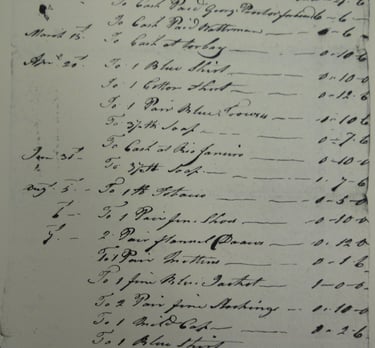 To Cash Paid Georg 6 - 6
To Cash Paid Waterman 0 - 6
March 15. To Cash at torbay 0 - 10 - 6
Apr. 20. To 1 Blue Shirt 0 - 10 - 0
To 1 Cotton Shirt 0 - 12 - 6
To 1 Pair Blue Trowsers 0 - 10 - 6
To 3 lb Soap 0 - 7 - 6
To Cash at Rio Janeiro 0 - 10 - 0
To 3 lb Soap 1 - 7 - 6
5. To 1 lb Tobacco 0 - 5 - 0
6 To 1 Pair fine Shoes 0 - 10 - 0
7. 2 Pair flannel Drawers 0 - 12 - 0
To 1 Pair Mittens 0 - 1 - 6
To 1 fine Blue Jacket 1 - 0 - 0
To 2 Pair fine Stockings 0 - 10 - 0
To 1 Cap 0 - 2 - 6
To 1 Blue Shirt